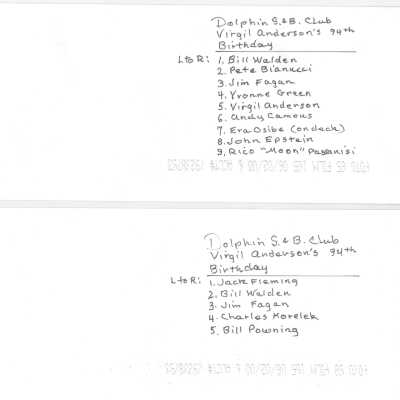 Dolphin S.&B. Club
Virgil Anderson's 94th
Birthday
L to R: 1. Bill Walden
2. Pete Bianucci
3. Jim Fagan
4. Yvonne Green
5. Virgil Anderson
6. Andy Camous
7. Era Osibe (on deck)
8. John Epstein
9. Rico "Moon" Paganisi
Dolphin S.&B. Club
Virgil Anderson's 94th
Birthday
L to R: 1. Jack Fleming
2. Bill Walden
3. Jim Fagan
4. Charles Korelek
5. Bill Powning